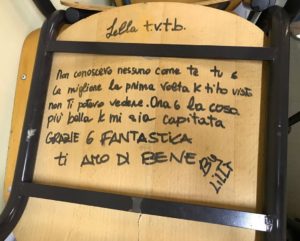 Lella t.v.t.b.
Non conoscevo nessuno come te tu 6
la migliore la prima volta k ti ho visto
non ti potevo vedere. Ora 6 la cosa
più bella k mi sia capitata
GRAZIE 6 FANTASTICA
ti AMO DI BENE
By
LILLY